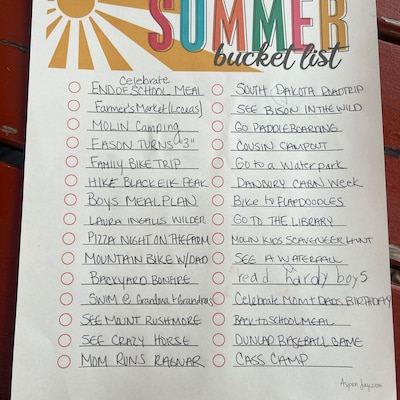 SUMMER
bucket list
Celebrate
END OF SCHOOL MEAL
Farmer's Market (Lexus)
MOLIN Camping
EASON TURNS "3"
FAMILY BIKE TRIP
HIKE BLACK ELK PEAK
BOYS MEAL PLAN
LAURA INGALLS WILDER
PIZZA NIGHT ON THE FARM
MOUNTAIN BIKE W/DAD
BACKYARD BONFIRE
SWIM @ Grandma + Grandpas
SEE MOUNT RUSHMORE
SEE CRAZY HORSE
MOM RUNS RAGNAR
SOUTH DAKOTA ROADTRIP
SEE BISON IN THE WILD
GO PADDLEBOARDING
COUSIN CAMPOUT
Go to a Waterpark
DANBURY CABIN Week
BIKE to FLAPDOODLES
GO TO THE LIBRARY
MOLIN KIDS SCAVENGER HUNT
SEE A WATERFALL
read Hardy boys
Celebrate MOM+DADS BIRTHDAY
BACK to SCHOOL MEAL
DUNLAP BASEBALL GAME
CASS CAMP